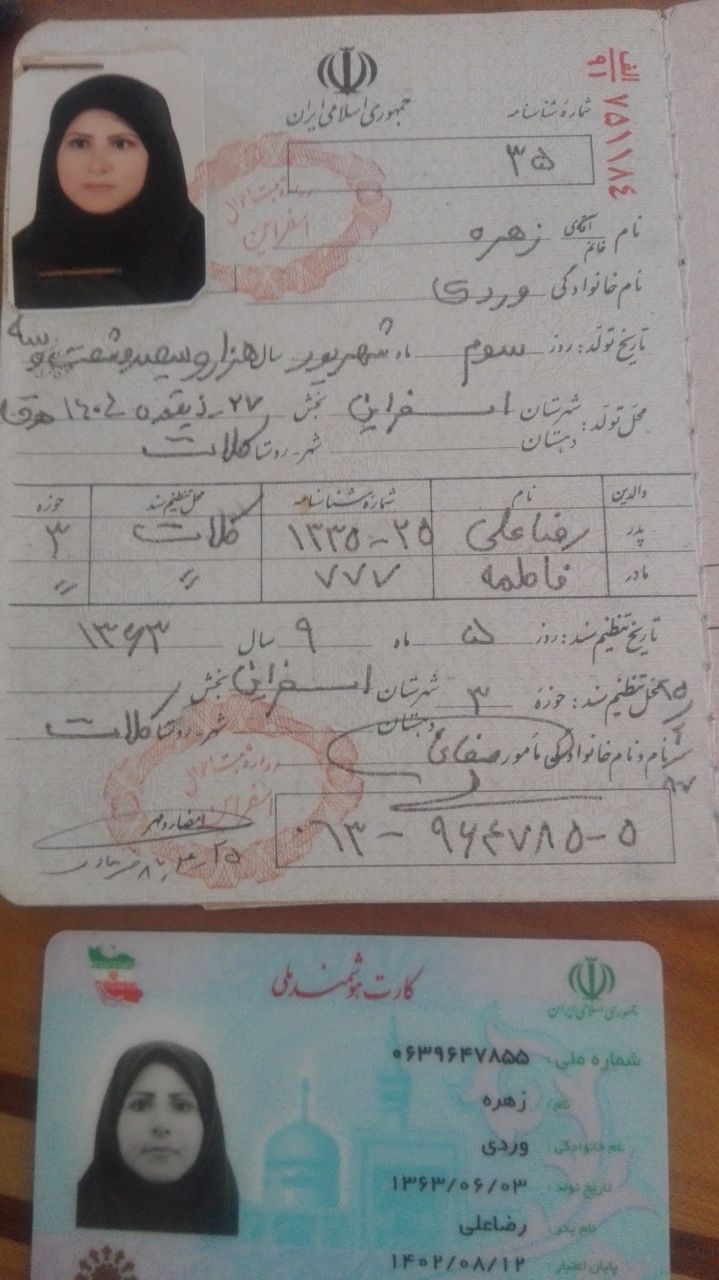 جمهوری اسلامی ایران
الف
۹۱
۷۵۱۱۸۴
شماره شناسنامه
۳۵
نام آقای خانم زهره
نام خانوادگی وردی
تاریخ تولد: روز سوم ماه شهریور سال هزار و سیصد و شصت و سه
محل تولد: شهرستان اسفراین بخش ۲۷ ذیقعده ۱۴۰۴ هـ ق
دهستان شهر-روستا کلات
والدین نام شماره شناسنامه محل تنظیم سند حوزه
پدر رضاعلی ۱۳۳۵-۲۵ کلات ۳
مادر فاطمه ۷۷۷〃 〃
تاریخ تنظیم سند: روز ۵ ماه ۹ سال ۱۳۶۳
محل تنظیم سند: حوزه ۳ شهرستان اسفراین بخش
دهستان شهر-روستا کلات
نام و نام خانوادگی مأمور صفائی
امضاء و مهر
۰۶۳-۹۶۴۷۸۵-۵
کارت هوشمند ملی
جمهوری اسلامی ایران
شماره ملی: ۰۶۳۹۶۴۷۸۵۵
نام: زهره
نام خانوادگی: وردی
تاریخ تولد: ۱۳۶۳/۰۶/۰۳
نام پدر: رضاعلی
پایان اعتبار: ۱۴۰۲/۰۸/۱۲